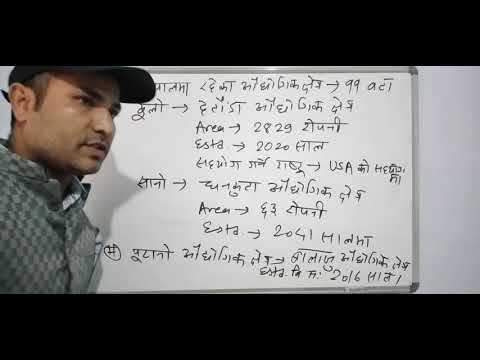 रहेका औद्योगिक क्षेत्र → ११ वटा
ठूलो → हेटौंडा औद्योगिक क्षेत्र
Area → 2829 रोपनी
Estb. → 2020 साल
सहयोग गर्ने राष्ट्र → USA को सहयोगमा
सानो → धनकुटा औद्योगिक क्षेत्र
Area → ६३ रोपनी
Estb. → 2041 सालमा
पुरानो औद्योगिक क्षेत्र → बालाजु औद्योगिक क्षेत्र
Estb. वि सं: 2016 साल।